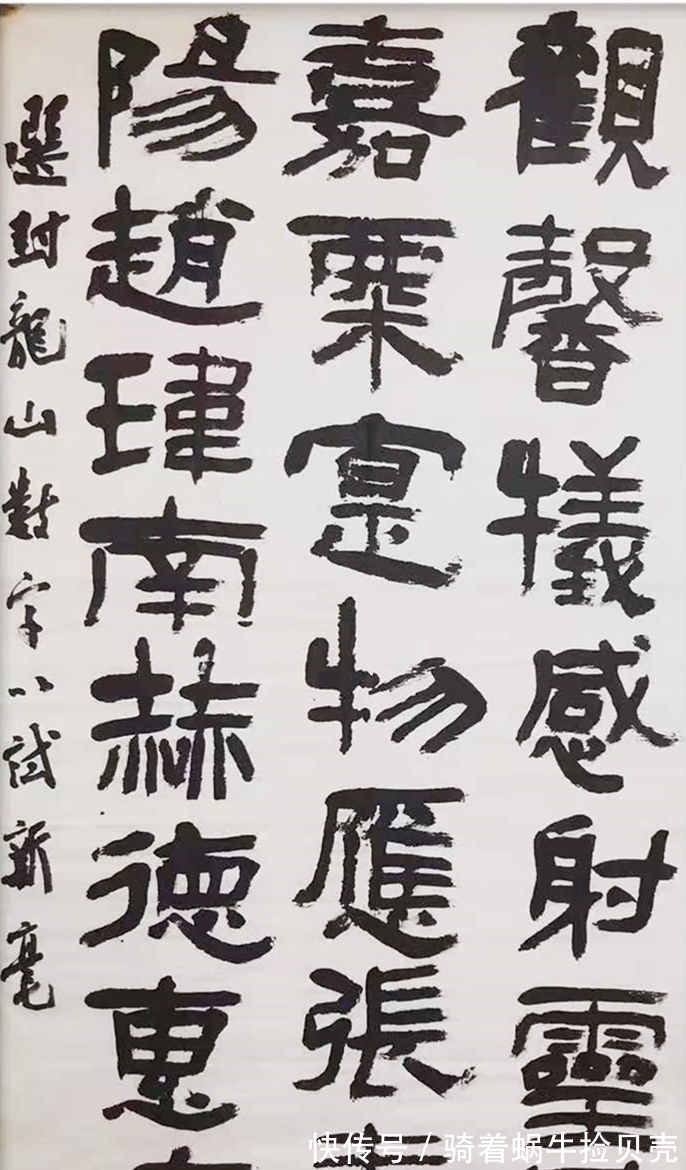 觀馨犧感射靈
嘉粟寔物應張
陽趙瑋南赫德惠
選封龍山對字以試新毫
快传号/骑着蜗牛捡贝壳